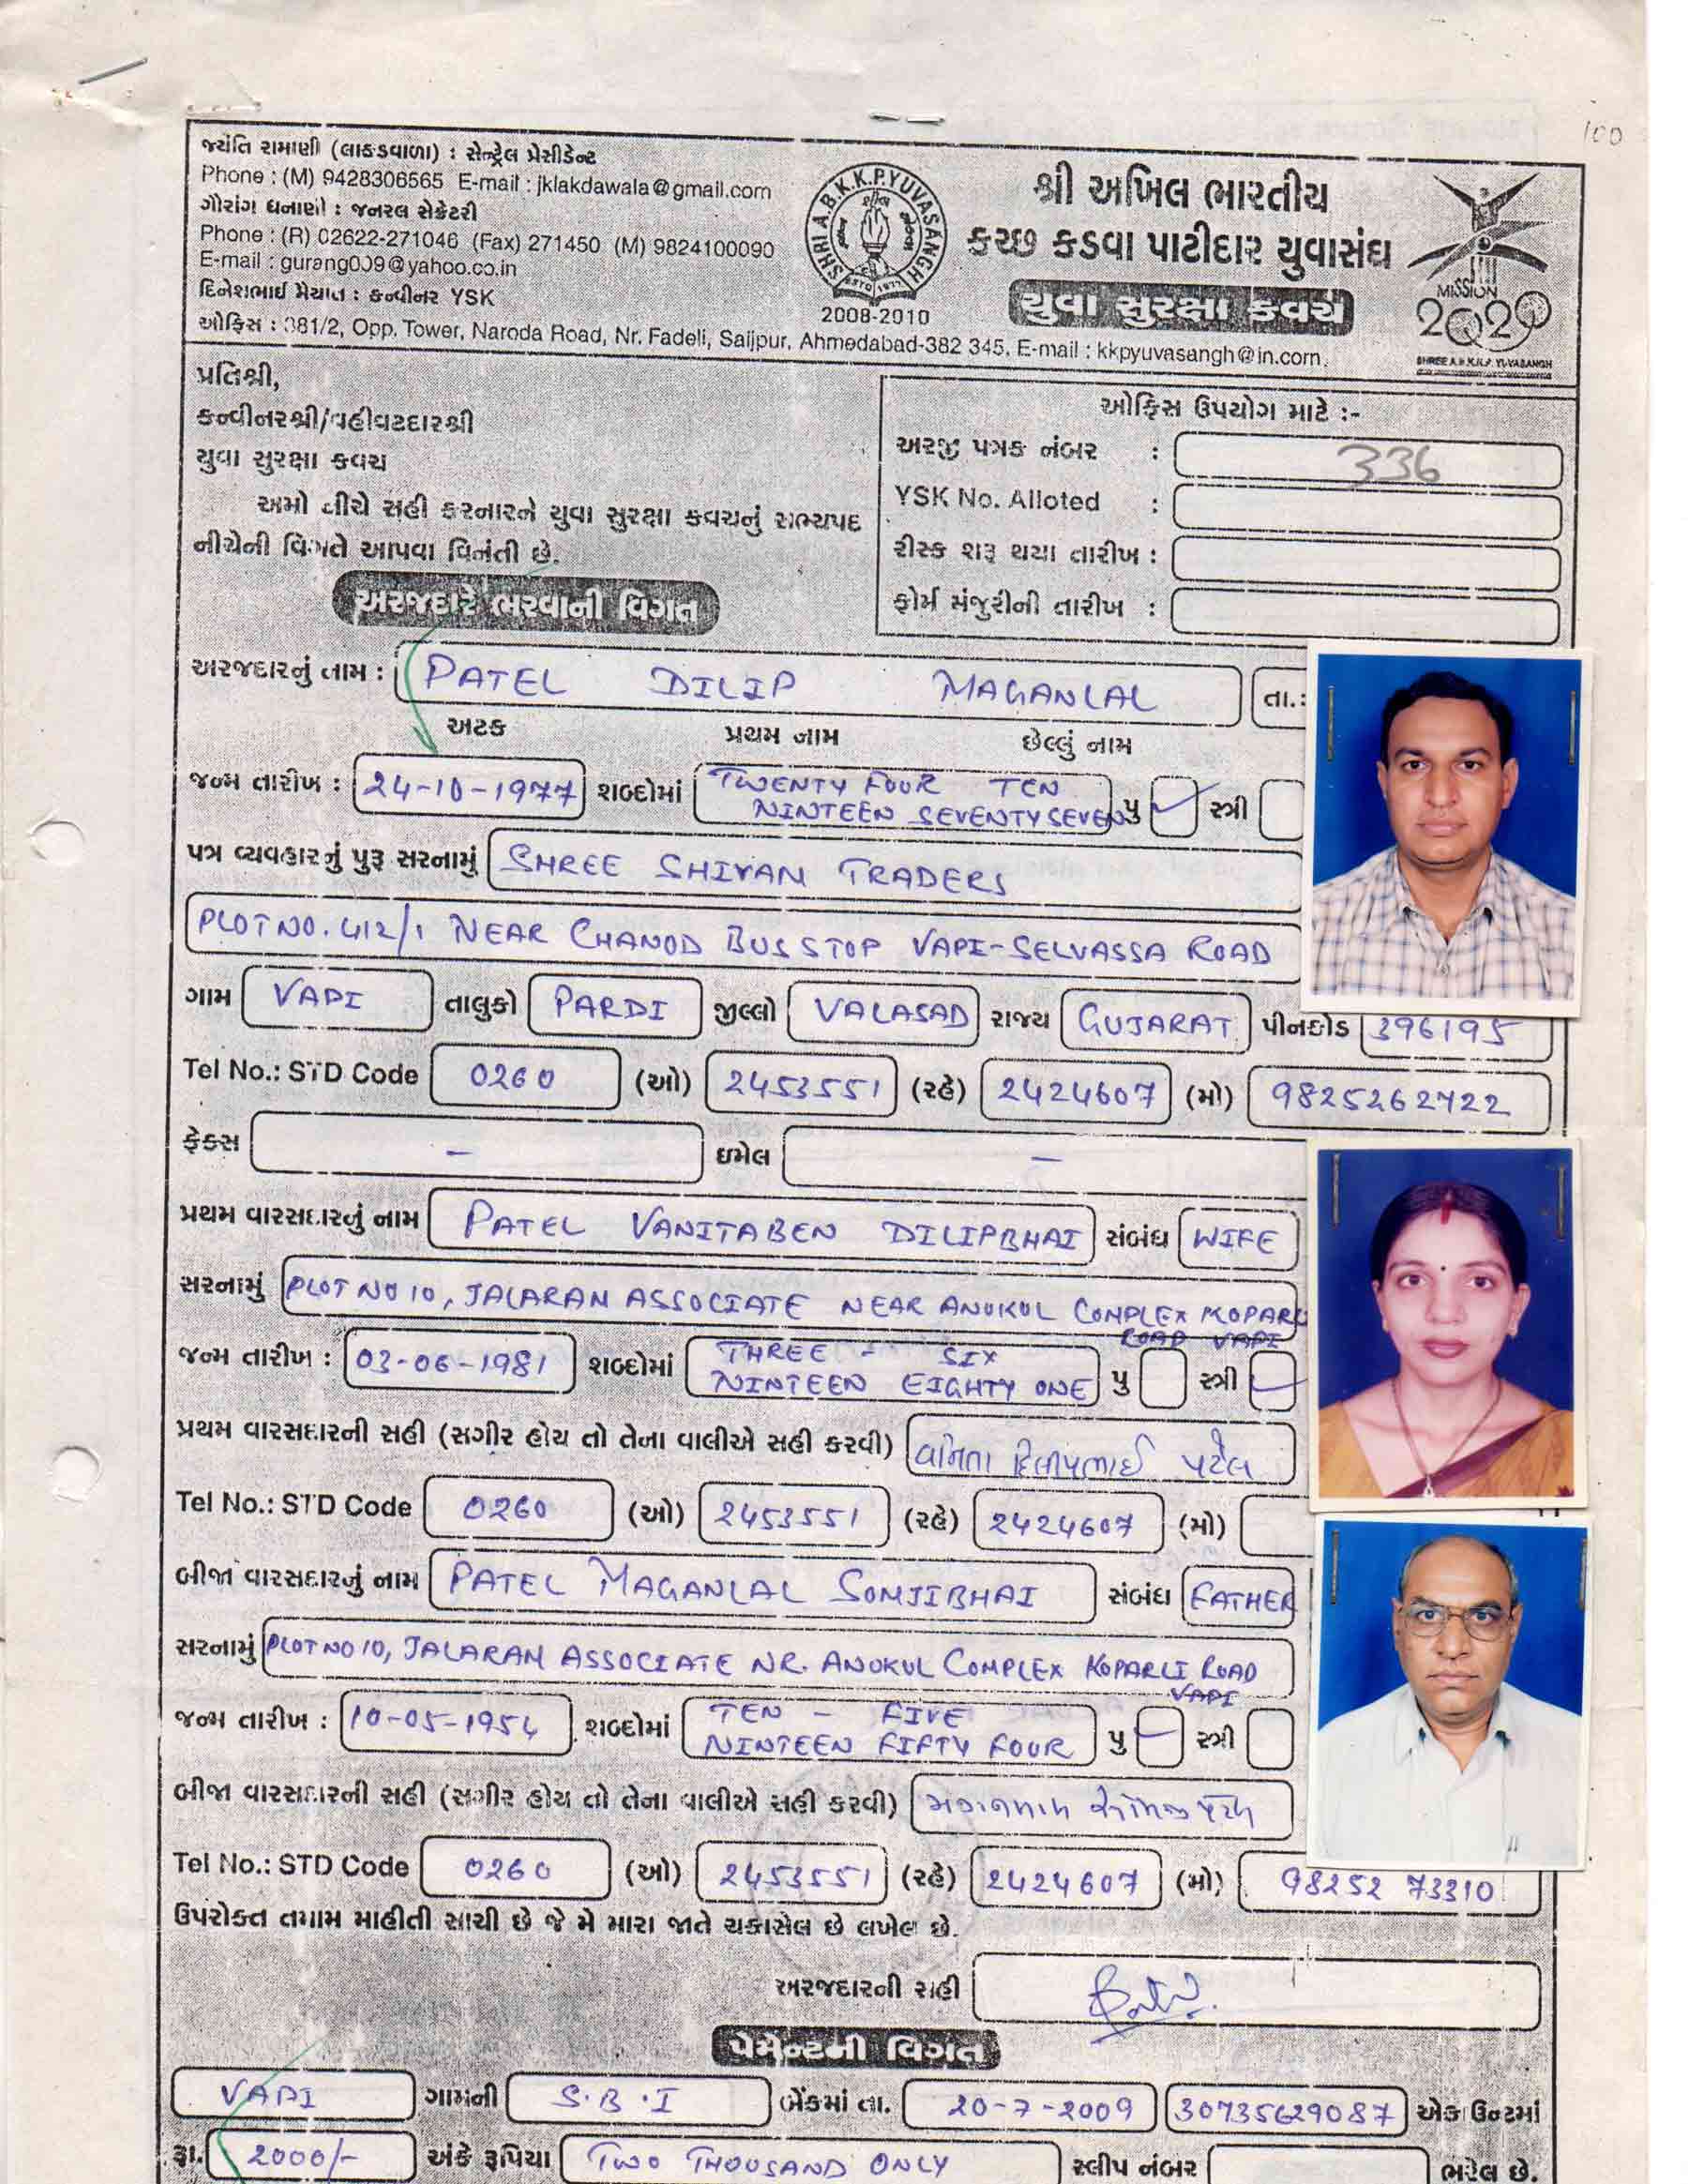 100
જયંતિ રામાણી (લાકડાવાળા) : સેન્ટ્રેલ પ્રેસીડેન્ટ
Phone : (M) 9428306565 E-mail : jklakdawala@gmail.com
ગૌરાંગ ધનાણી : જનરલ સેક્રેટરી
Phone : (R) 02622-271046 (Fax) 271450 (M) 9824100090
E-mail : gurang009@yahoo.co.in
દિનેશભાઈ મૈયાત : કન્વીનર YSK
ઓફિસ : 381/2, Opp. Tower, Naroda Road, Nr. Fadeli, Saijpur, Ahmedabad-382 345. E-mail : kkpyuvasangh@in.com.
SHRI A.B.K.K.P. YUVASANGH
ESTD 1977
2008-2010
શ્રી અખિલ ભારતીય
કચ્છ કડવા પાટીદાર યુવાસંઘ
યુવા સુરક્ષા કવચ
MISSION
2029
SHREE A.B.K.K.P. YUVASANGH
પ્રતિશ્રી,
કન્વીનરશ્રી/વહીવટદારશ્રી
યુવા સુરક્ષા કવચ
અમો નીચે સહી કરનારને યુવા સુરક્ષા કવચનું સભ્યપદ
નીચેની વિગતે આપવા વિનંતી છે.
ઓફિસ ઉપયોગ માટે :-
અરજી પત્રક નંબર : 336
YSK No. Alloted :
રીસ્ક શરૂ થયા તારીખ :
ફોર્મ મંજુરીની તારીખ :
અરજદારે ભરવાની વિગત
અરજદારનું નામ : PATEL DILIP MAGANLAL તા.:
અટક પ્રથમ નામ છેલ્લું નામ
જન્મ તારીખ : 24-10-1977 શબ્દોમાં TWENTY FOUR TEN NINTEEN SEVENTY SEVEN પુ ✓ સ્ત્રી
પત્ર વ્યવહારનું પુરૂ સરનામું SHREE SHIVAN TRADERS
PLOT NO. 412/1 NEAR CHANOD BUS STOP VAPI-SELVASSA ROAD
ગામ VAPI તાલુકો PARDI જીલ્લો VALASAD રાજ્ય GUJARAT પીનકોડ 396195
Tel No.: STD Code 0260 (ઓ) 2453551 (રહે) 2424607 (મો) 9825262722
ફેકસ - ઇમેલ -
પ્રથમ વારસદારનું નામ PATEL VANITABEN DILIPBHAI સંબંધ WIFE
સરનામું PLOT NO 10, JALARAM ASSOCIATE NEAR ANUKUL COMPLEX KOPARLI ROAD VAPI
જન્મ તારીખ : 03-06-1981 શબ્દોમાં THREE - SIX NINTEEN EIGHTY ONE પુ સ્ત્રી ✓
પ્રથમ વારસદારની સહી (સગીર હોય તો તેના વાલીએ સહી કરવી) વનિતા દિલીપભાઈ પટેલ
Tel No.: STD Code 0260 (ઓ) 2453551 (રહે) 2424607 (મો)
બીજા વારસદારનું નામ PATEL MAGANLAL SOMJIBHAI સંબંધ FATHER
સરનામું PLOT NO 10, JALARAM ASSOCIATE NR. ANUKUL COMPLEX KOPARLI ROAD VAPI
જન્મ તારીખ : 10-05-1954 શબ્દોમાં TEN - FIVE NINTEEN FIFTY FOUR પુ ✓ સ્ત્રી
બીજા વારસદારની સહી (સગીર હોય તો તેના વાલીએ સહી કરવી)
Tel No.: STD Code 0260 (ઓ) 2453551 (રહે) 2424607 (મો) 98252 73310
ઉપરોકત તમામ માહીતી સાચી છે જે મે મારા જાતે ચકાસેલ છે લખેલ છે.
અરજદારની સહી
પેમેન્ટની વિગત
VAPI ગામની S.B.I બેંકમાં તા. 20-7-2009 30735629087 એકાઉન્ટમાં
રૂા. 2000/- અંકે રૂપિયા TWO THOUSAND ONLY સ્લીપ નંબર ભરેલ છે.